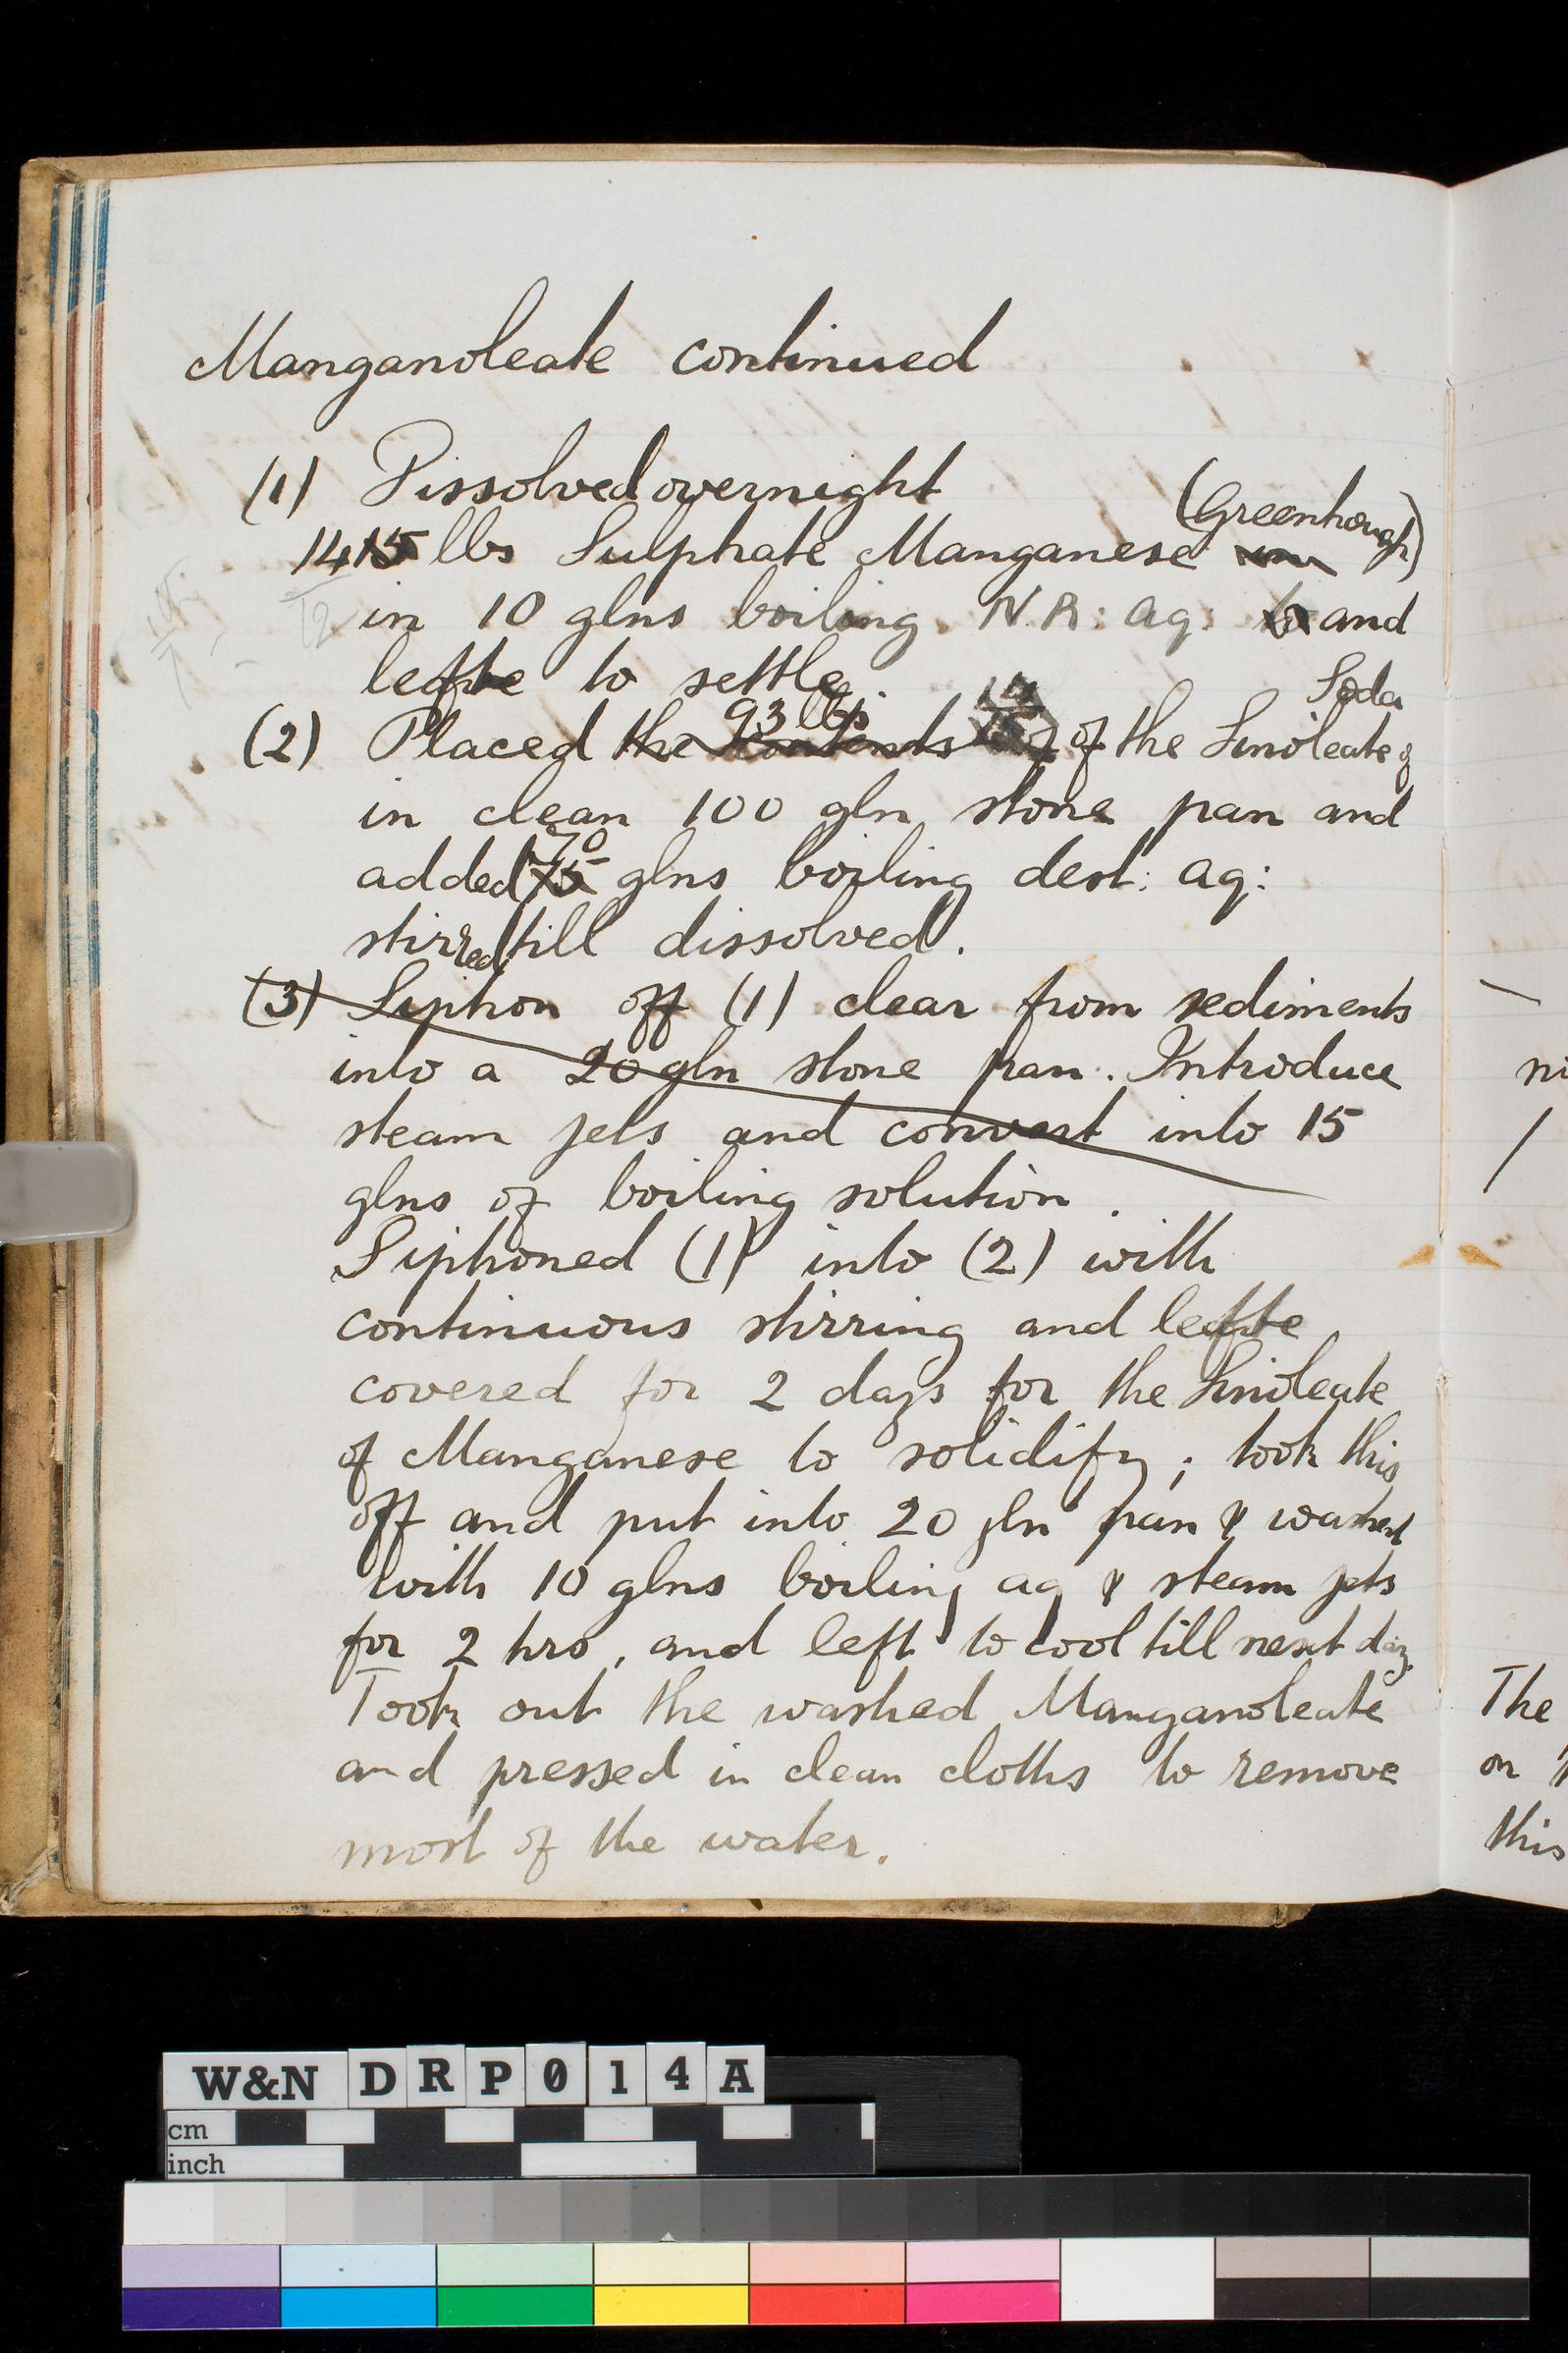 Manganoleate continued
(1) Dissolved overnight
(Greenhough)
14 15 lbs Sulphate Manganese
in 10 glns boiling N.R: aq: to and
lefte to settle.
93 lbs Soda
(2) Placed the contents of of the Linoleate of
in clean 100 gln stone pan and
70
added 75 glns boiling dest: aq:
stirred till dissolved.
(3) Siphon off (1) clear from sediments
into a 20 gln stone pan. Introduce
steam jets and convert into 15
glns of boiling solution.
Siphoned (1) into (2) with
continuous stirring and lefte
covered for 2 days for the Linoleate
of Manganese to solidify; took this
off and put into 20 gln pan & washed
with 10 glns boiling aq & steam jets
for 2 hrs, and left to cool till next day.
Took out the washed Manganoleate
and pressed in clean cloths to remove
most of the water.
The
on
this
W&N DRP014A
cm
inch